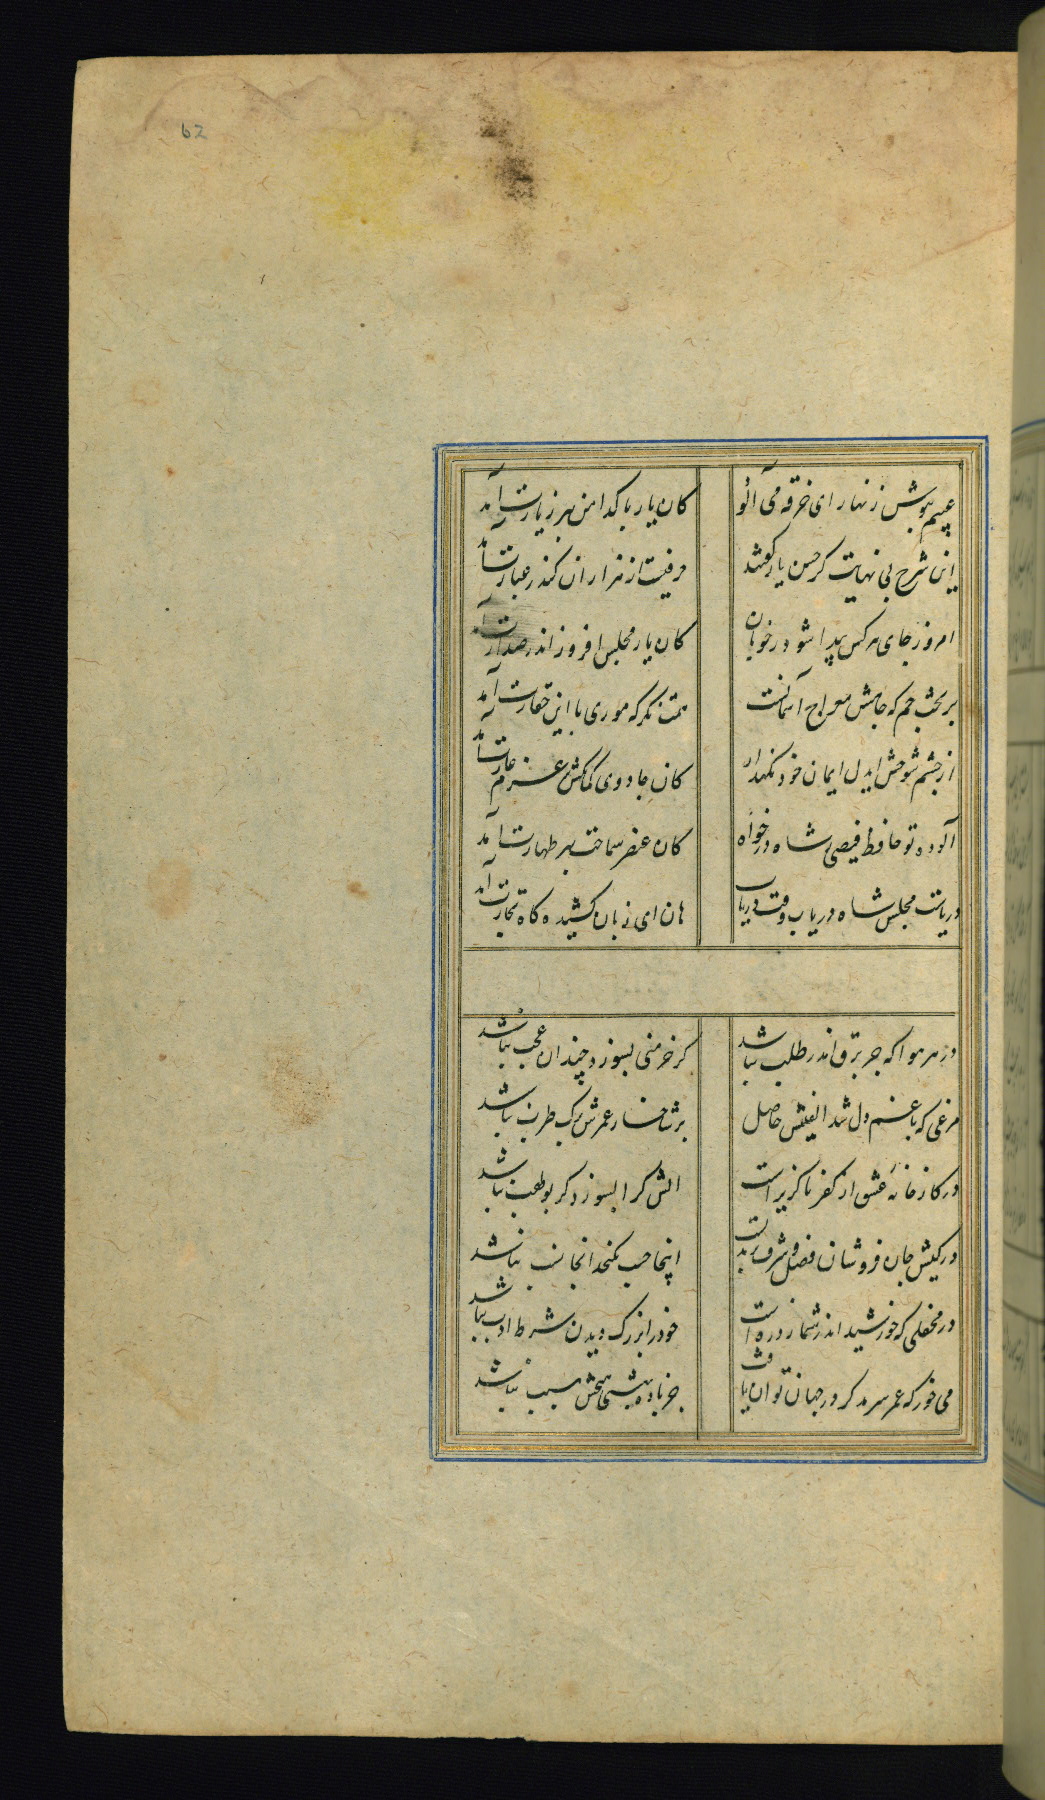 62
عیبم بپوش زنهار ای خرقه می آلود
کان یار پاکدامن بهر زیارت آمد
این شرح بی نهایت کز حسن یار گفتند
حرفیست از هزاران کاندر عبارت آمد
امروز جای هر کس پیدا شود ز خوبان
کان یار مجلس افروز اندر صدارت آمد
بر تخت جم که تاجش معراج آسمانست
همت نگر که موری با این حقارت آمد
از چشم شوخش ایدل ایمان خود نگهدار
کان جادوی کمانکش بر عزم غارت آمد
آلوده تو حافظ فیضی ز شاه درخواه
کان عنصر سماحت بهر طهارت آمد
دریاست مجلس شاه دریاب وقت و دریاب
هان ای زیان کشیده گاه تجارت آمد
در هر هوا که جز برق اندر طلب نباشد
گر خرمنی بسوزد چندان عجب نباشد
مرغی که با غم دل شد الفتیش حاصل
بر شاخسار عمرش برگ طرب نباشد
در کارخانه عشق از کفر ناگزیر است
آتش کرا بسوزد گر بولهب نباشد
در کیش جان فروشان فضل و شرف برندیست
اینجا حسب نگنجد آنجا نسب نباشد
در محفلی که خورشید اندر شمار ذره است
خود را بزرگ دیدن شرط ادب نباشد
می خور که عمر سرمد گر در جهان توان یافت
جز باده بهشتی هیچش سبب نباشد